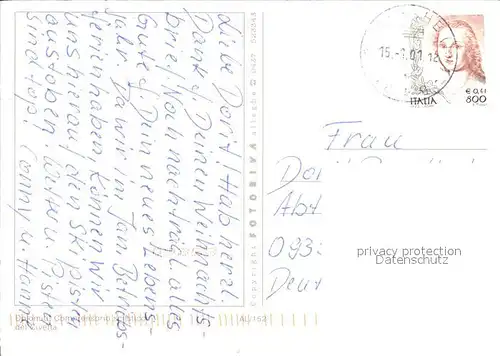 Liebe Dorit! Hab herzl.
Dank f. Deinen Weihnachts-
brief. Noch nachträgl. alles
Gute f. Dein neues Lebens-
jahr. Da wir im Jan. Betriebs-
ferien haben, können wir
uns hier auf den Skipisten
austoben. Wetter u. Pisten
sind top! Conny u. Hann
Copyright FOTORIVA
AL/152
15. 1.01.12
€ 0,41
800
ITALIA
Frau
Abt
093
Deut
privacy protection
Datenschutz